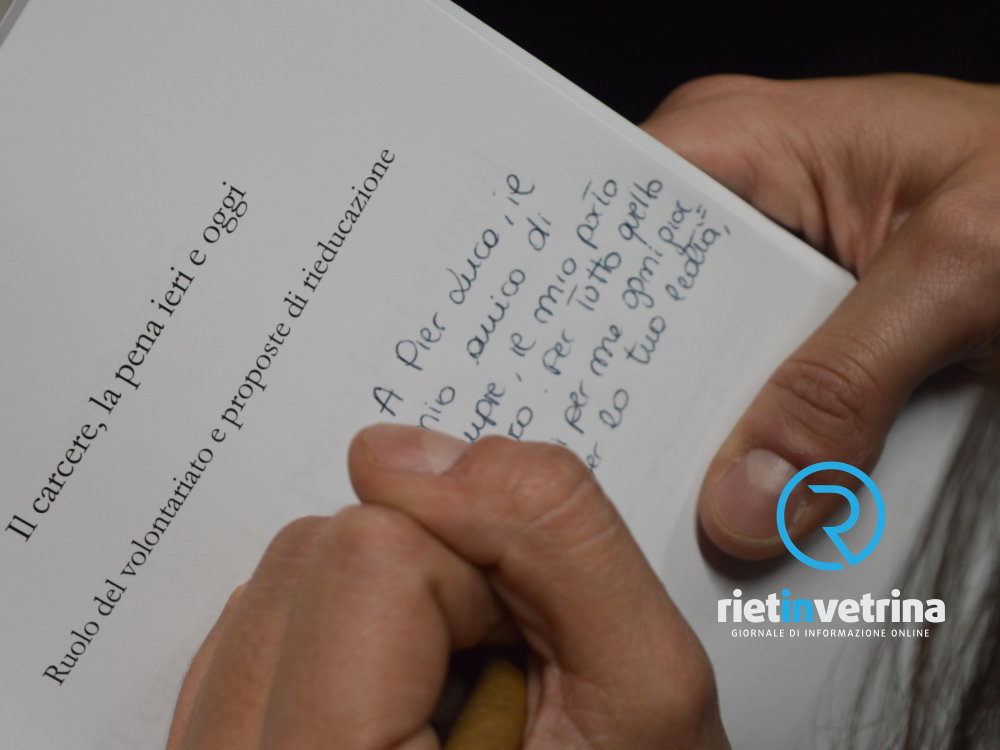 Il carcere, la pena ieri e oggi
Ruolo del volontariato e proposte di rieducazione
A Pier Luca, il
mio amico di
il mio porto
. Per tutto quello
per me ogni giorno
lo tuo lealtà,
rietinvetrina
GIORNALE DI INFORMAZIONE ONLINE